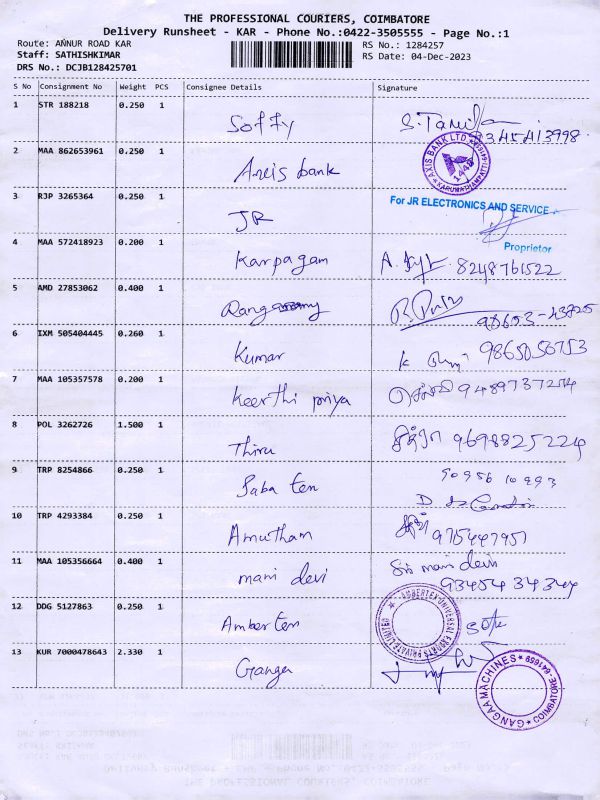 THE PROFESSIONAL COURIERS, COIMBATORE
Delivery Runsheet - KAR - Phone No.:0422-3505555 - Page No.:1
Route: ANNUR ROAD KAR
Staff: SATHISHKIMAR
DRS No.: DCJB128425701
RS No.: 1284257
RS Date: 04-Dec-2023
S No Consignment No Weight PCS Consignee Details Signature
1 STR 188218 0.250 1 Soffy
2 MAA 862653961 0.250 1 Axcis bank AXIS BANK LTD. 1448
3 RJP 3265364 0.250 1 JR For JR ELECTRONICS AND SERVICE
Proprietor
4 MAA 572418923 0.200 1 Karpagam 8248761522
5 AMD 27853062 0.400 1
6 IXM 505404445 0.260 1 Kumar 9865050753
7 MAA 105357578 0.200 1 Keerthi priya செல்வி 9489737254
8 POL 3262726 1.500 1 Thiru சித்ரா 9698825224
9 TRP 8254866 0.250 1 Saba ten 90956 10993
10 TRP 4293384 0.250 1 Amutham 9715447957
11 MAA 105356664 0.400 1 mani devi mani devi
93454 34344
12 DDG 5127863 0.250 1 Amber ten AMBERTEX UNIVERSAL EXPORTS PRIVATE LIMITED
13 KUR 7000478643 2.330 1 Ganga GANGAA MACHINES * COIMBATORE-641659